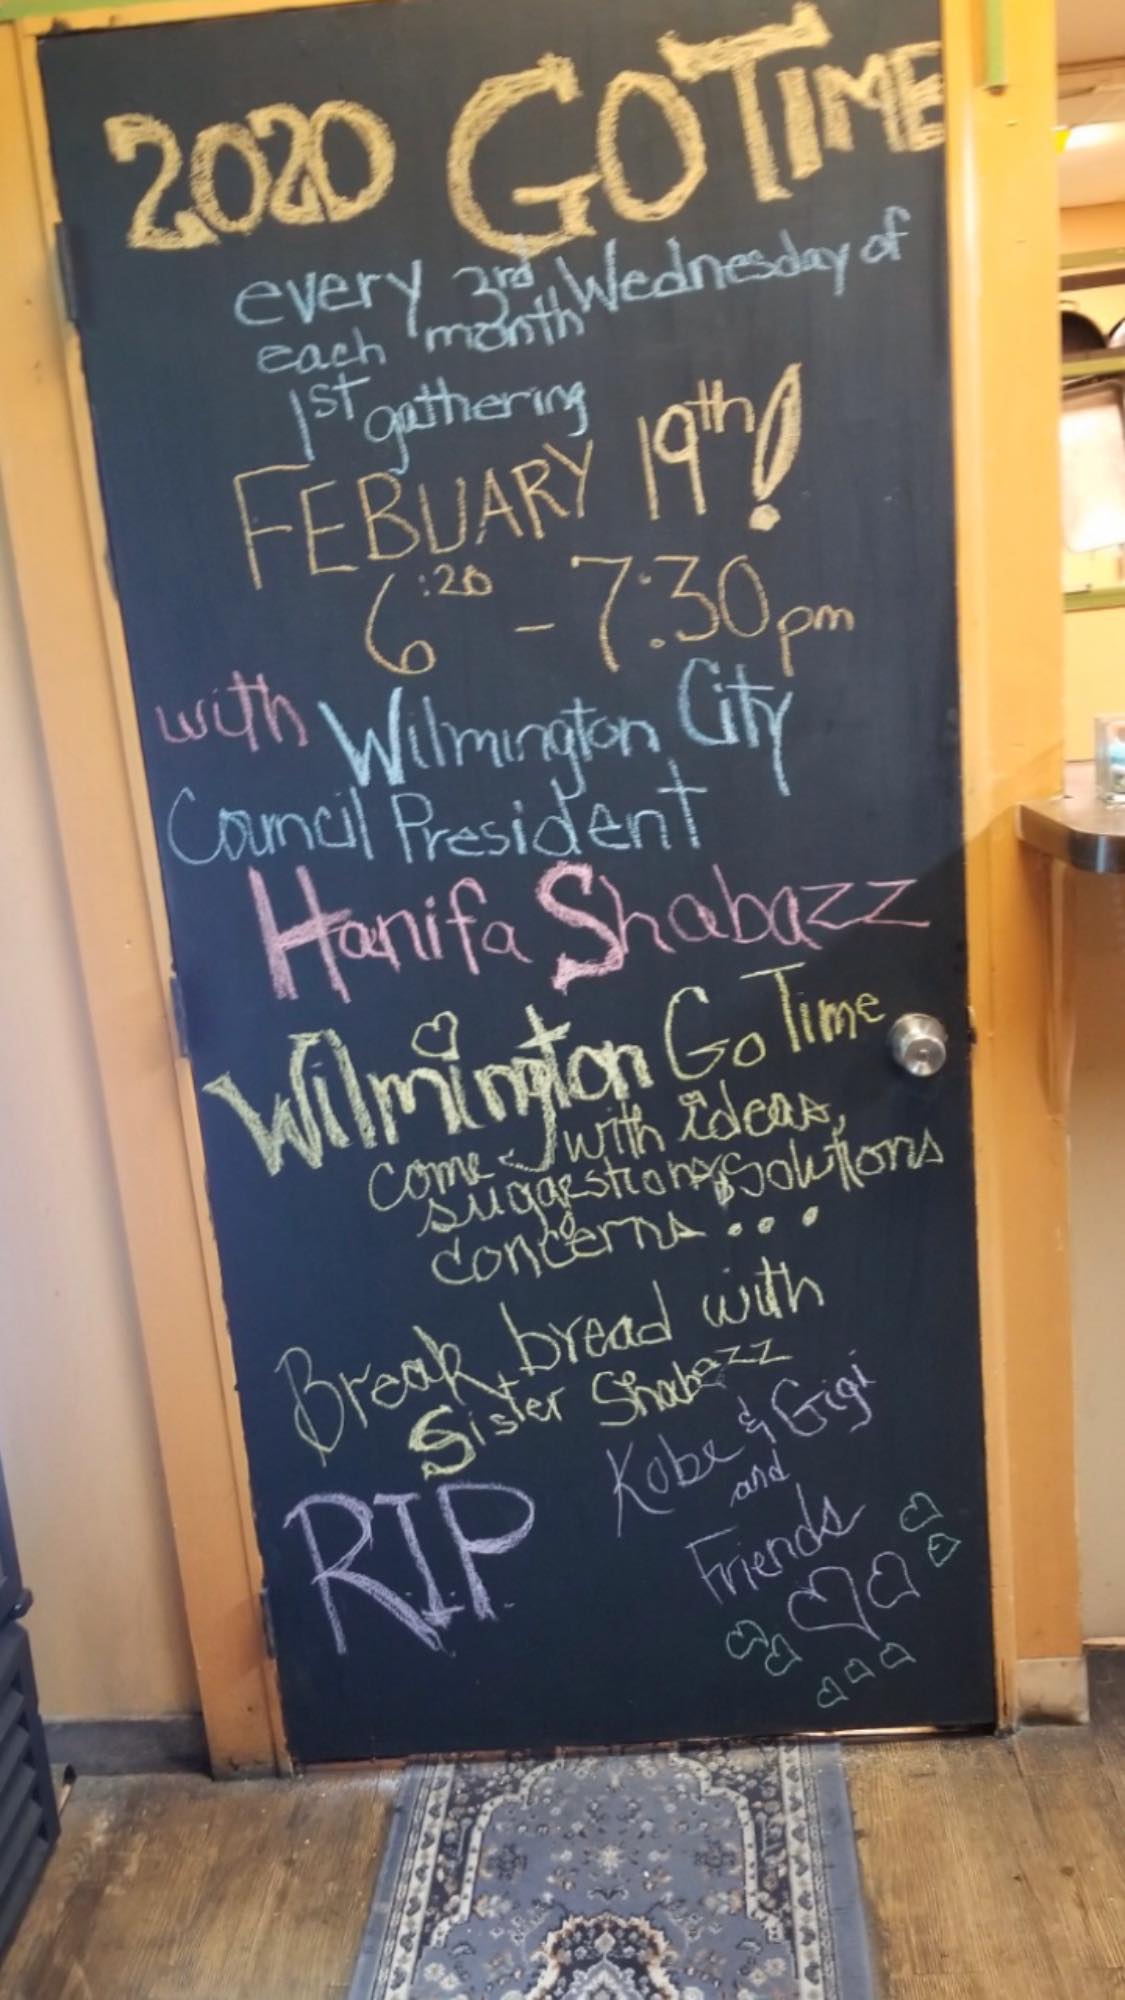 2020 GO TIME
every 3rd Wednesday of
each month
1st gathering
FEBUARY 19th!
6:20 - 7:30pm
with Wilmington City
Council President
Hanifa Shabazz
Wilmington Go Time
come with ideas,
suggestions, solutions
concerns...
Break bread with
Sister Shabazz
Kobe & Gigi
and
Friends
RIP